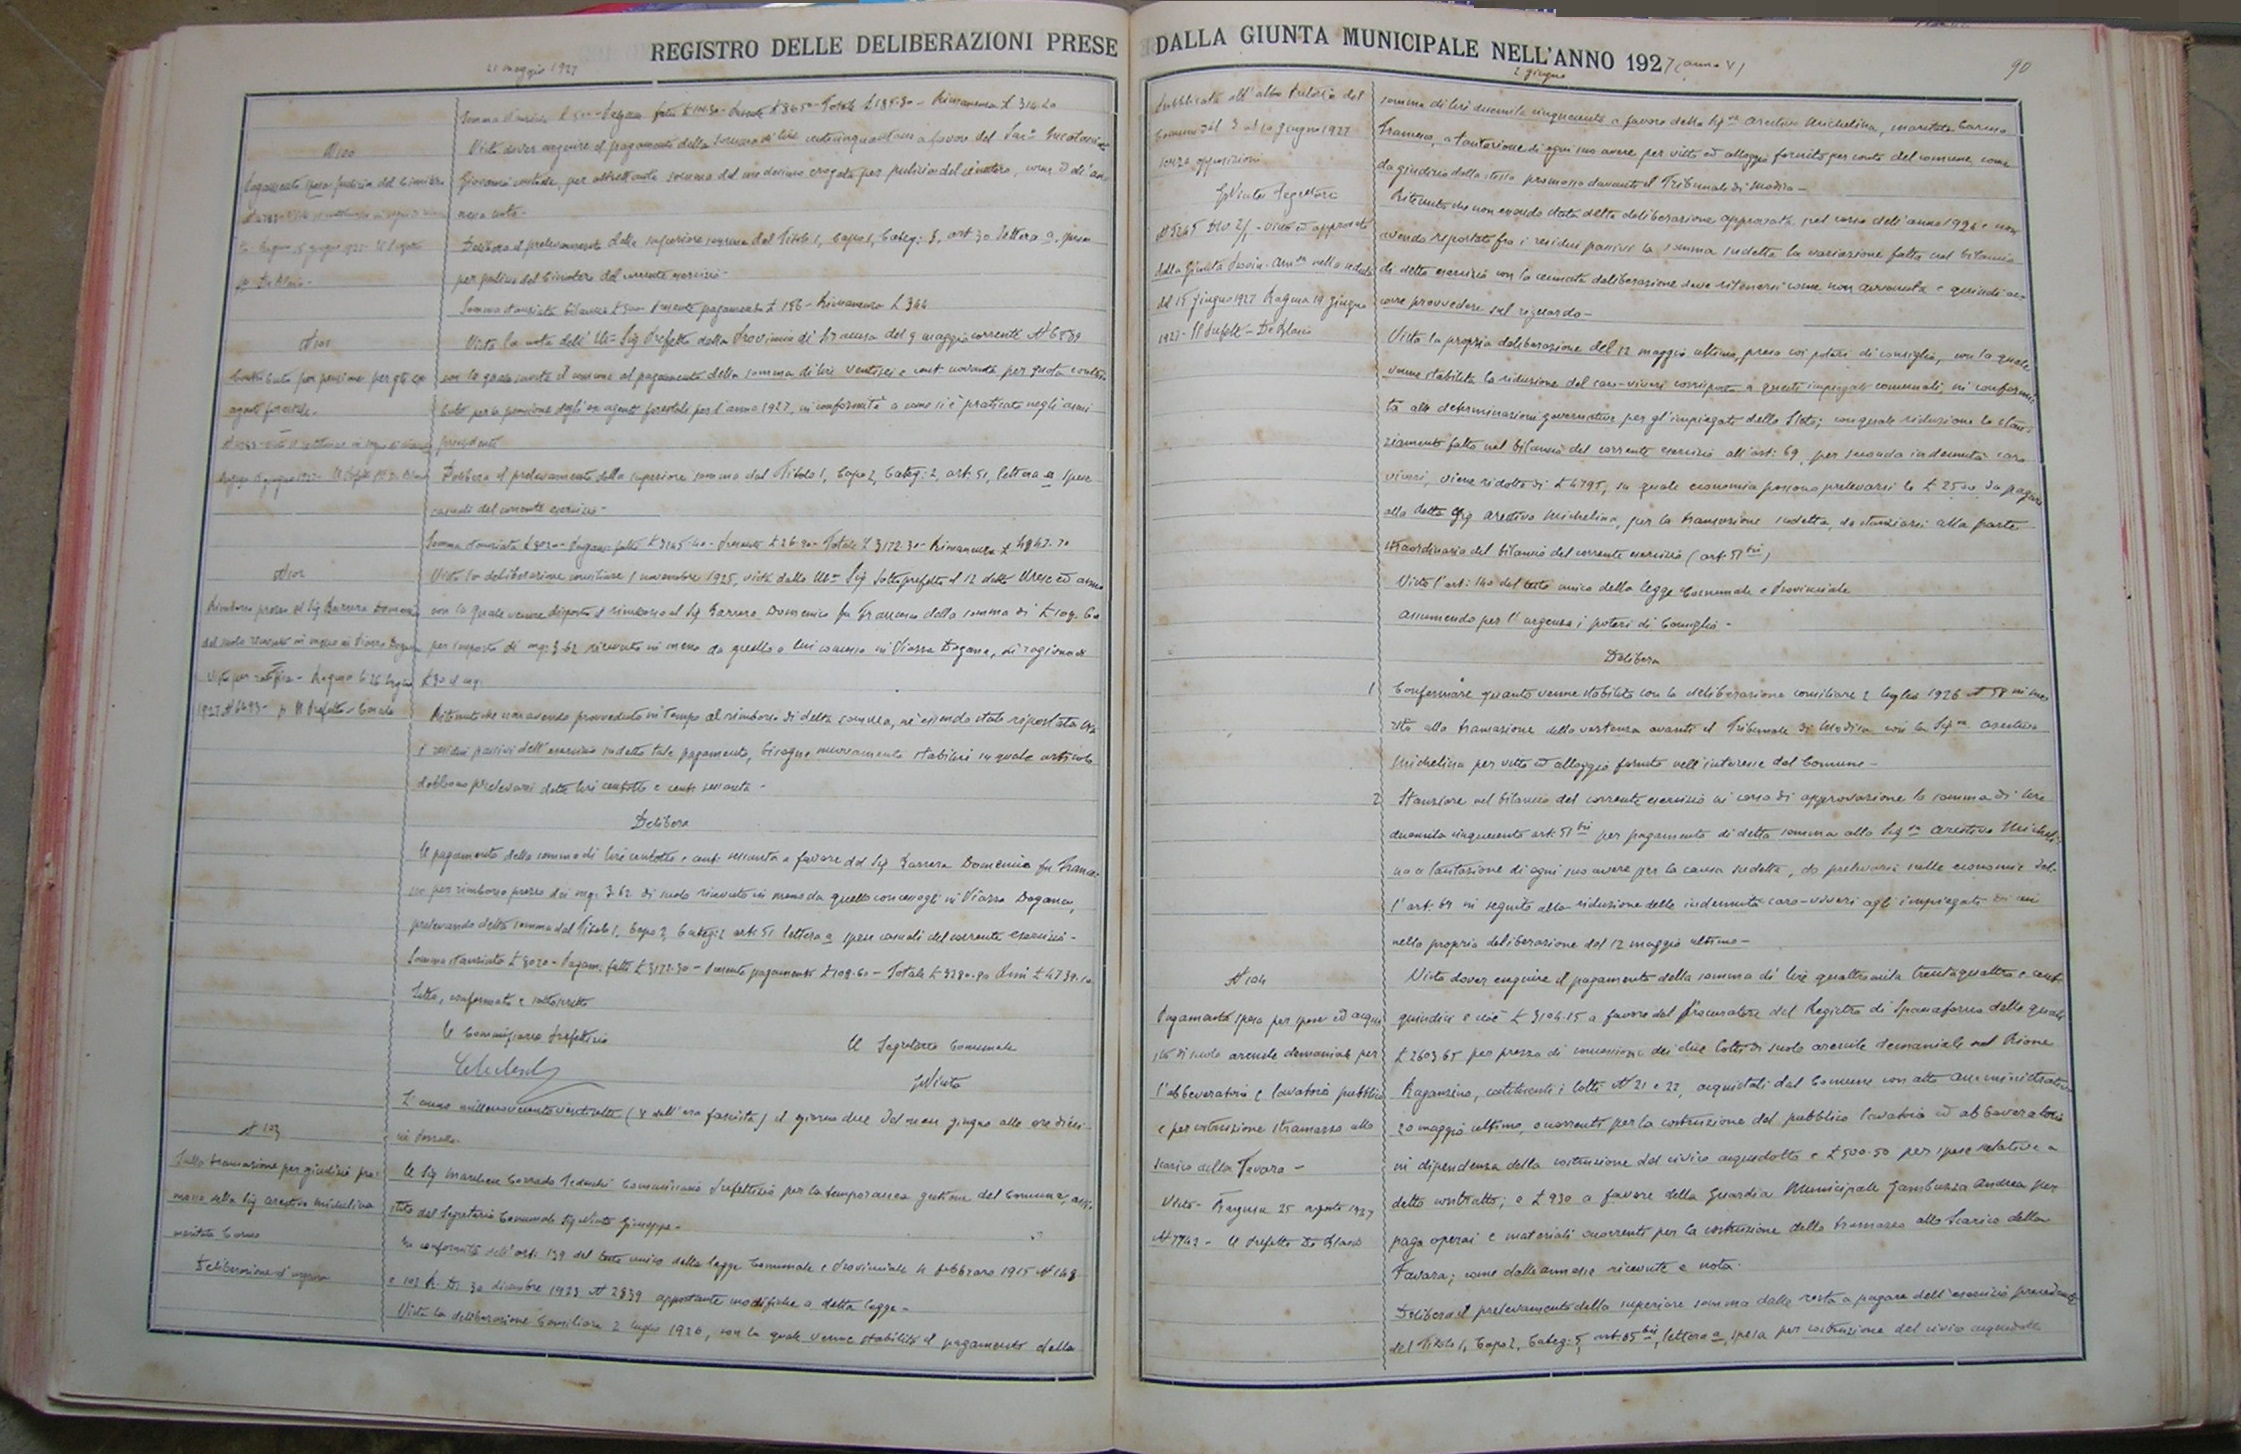 REGISTRO DELLE DELIBERAZIONI PRESE
21 maggio 1927
Somma stanziata £ 500 - Pagam. fatti £ 104.30 - Presente £ 36.50 - Totale £ 185.30 - Rimanenza £ 314.20
N 100
Visto dover eseguire il pagamento della somma di lire centocinquantasei a favore del
Pagamento spesa pulizia del Cimitero
Giovanni custode, per altrettanta somma dal medesimo erogata per pulizia del cimitero, come di
nessa nota.
Delibera il prelevamento della superiore somma dal Titolo 1, Capo 1, Categ: 3, art. 30 lettera a, spese
per pulizia del Cimitero del corrente esercizio -
Somma stanziata bilancio £ 500 - Presente pagamento £ 156 - Rimanenza £ 344
N 101
Vista la nota dell'Ill. Sig Prefetto della Provincia di Siracusa del 9 maggio corrente N 6539
Contributo per pensione per gli ex
con la quale invita il comune al pagamento della somma di lire ventisei e cent novanta per quota contri-
agenti forestali.
buto per la pensione degli ex agenti forestali per l'anno 1927, in conformità a come si è praticato negli anni
precedenti
Delibera il prelevamento della superiore somma dal Titolo 1, Capo 2, Categ: 2, art. 51, lettera a spese
casuali del corrente esercizio -
Somma stanziata £ 8020 - Pagam. fatti £ 3145.40 - Presente £ 26.90 - Totale £ 3172.30 - Rimanenza £ 4847.70
N 102
Vista la deliberazione consiliare 1 novembre 1925, vista dallo Ill. Sig Sottoprefetto il 12 detto mese ed anno
Rimborso prezzo al Sig Barrera Domenico
con la quale venne disposto il rimborso al Sig Barrera Domenico fu Francesco della somma di £ 108.60
del suolo ricevuto in meno in Piazza Dogana
per importo di mq: 3.62 ricevuto in meno da quello a lui concesso in Piazza Dogana, in ragione di
Visto per ratifica - Ragusa li 26 luglio
£ 30 il mq.
1927 N 6493 - p. Il Prefetto
Ritenuto che non avendo provveduto in tempo al rimborso di detta somma, nè essendo stata riportata tra
i residui passivi dell'esercizio sudetto tale pagamento, bisogna nuovamente stabilire in quale articolo
debbono prelevarsi dette lire centotto e cent sessanta -
Delibera
Il pagamento della somma di lire centotto e cent: sessanta a favore del Sig Barrera Domenico fu France-
sco per rimborso prezzo dei mq. 3.62 di suolo ricevuto in meno da quello concessogli in Piazza Dogana,
prelevando detta somma dal Titolo 1, Capo 2, Categ: 2 art. 51 lettera a spese casuali del corrente esercizio -
Somma stanziata £ 8020 - Pagam. fatti £ 3172.30 - Presente pagamento £ 108.60 - Totale £ 3280.90 Rim £ 4739.10
Letto, confermato e sottoscritto
Il Commissario Prefettizio
Il Segretario Comunale
L'anno millenovecentoventisette (V dell'era fascista) il giorno due del mese giugno alle ore dieci
in Pozzallo.
N 103
Sulla transazione per giudizio pro-
Il Sig Marchese Corrado Tedeschi Commissario Prefettizio per la temporanea gestione del Comune, assi-
mosso dalla Sig Arestivo Michelina
stito dal Segretario Comunale Sig Giuseppe -
maritata Caruso
In conformità dell'art. 139 del testo unico della legge Comunale e Provinciale 4 febbraro 1915 N 148
Deliberazione d'urgenza
e 103 R. D. 30 dicembre 1923 N 2839 apportante modifiche a detta legge -
Vista la deliberazione Consiliare 2 luglio 1926, con la quale venne stabilito il pagamento della
DALLA GIUNTA MUNICIPALE NELL'ANNO 1927 (anno V)
2 giugno
90
Pubblicata all'albo Pretorio del
somma di lire duemila cinquecento a favore della Sigra Arestivo Michelina, maritata Caruso
Comune dal 3 al 10 giugno 1927
Francesco, a tantazione di ogni suo avere per vitto ed alloggio fornito per conto del comune come
senza opposizioni
da giudizio dalla stessa promosso davanti il Tribunale di Modica -
Segretario
Ritenuto che non essendo stata detta deliberazione approvata nel corso dell'anno 1926 e non
N 5245 Div 2/ - visto ed approvato
avendo riportato fra i residui passivi la somma sudetta la variazione fatta nel bilancio
dalla Giunta Provin. Amva nella seduta
di detto esercizio con la cennata deliberazione deve ritenersi come non avvenuta e quindi oc-
del 15 giugno 1927 Ragusa 19 giugno
corre provvedere sul riguardo -
1927 - Il Prefetto - De Blasio
Vista la propria deliberazione del 12 maggio ultimo, presa coi poteri di consiglio, con la quale
venne stabilita la riduzione del caro-viveri corrisposto a questi impiegati comunali, in conformi-
tà alle determinazioni governative per gl'impiegati dello Stato; con quale riduzione lo stan-
ziamento fatto nel bilancio del corrente esercizio all'art: 69, per seconda indennità caro
viveri, viene ridotto di £ 4795, su quale economia possono prelevarsi le £ 2500 da pagare
alla detta Sig Arestivo Michelina, per la transazione sudetta, da stanziarsi alla parte
straordinaria del bilancio del corrente esercizio (art. 51 bis)
Visto l'art: 140 del testo unico della legge Comunale e Provinciale
Assumendo per l'urgenza i poteri di Consiglio -
Delibera
1 Confermare quanto venne stabilito con la deliberazione consiliare 2 luglio 1926 N 58 in me-
rito alla transazione della vertenza avanti il Tribunale di Modica con la Sigra Arestivo
Michelina per vitto ed alloggio fornito nell'interesse del Comune -
2 Stanziare nel bilancio del corrente esercizio in corso di approvazione la somma di lire
duemila cinquecento art. 51 bis per pagamento di detta somma alla Sigra Arestivo Micheli-
na a tantazione di ogni suo avere per la causa sudetta, da prelevarsi sulle economie del-
l'art. 69 in seguito alla riduzione delle indennità caro-viveri agli impiegati di cui
nella propria deliberazione del 12 maggio ultimo -
N 104
Visto dover eseguire il pagamento della somma di lire quattromila trentaquattro e cent
Pagamento spesa per spese ed acqui-
quindici e cioè £ 3104.15 a favore del Procuratore del Registro di Spaccaforno delle quali
sto di suolo arenile demaniale per
£ 2603.65 per prezzo di concessione dei due lotti di suolo arenile demaniale nel Rione
l'abbeveratoio e lavatoio pubblico
Raganzino, costituenti i lotti N 21 e 22, acquistati dal Comune con atto amministrativo
e per costruzione stramazzo allo
20 maggio ultimo, occorrenti per la costruzione del pubblico lavatoio ed abbeveratoio
scarico della Favara -
in dipendenza della costruzione del civico acquedotto e £ 500.50 per spese relative a
Visto - Ragusa 25 agosto 1927
detto contratto; e £ 930 a favore della Guardia Municipale Gambuzza Andrea per
N 7742 - Il Prefetto De Blasio
paga operai e materiali occorrenti per la costruzione dello tramazzo allo Scarico della
Favara; come dalle annesse ricevute e nota.
Delibera il prelevamento della superiore somma dalle resta a pagare dell'esercizio precedente
del Titolo 1, Capo 2, Categ: 5, art. 85 bis, lettera a, spesa per costruzione del civico acquedotto